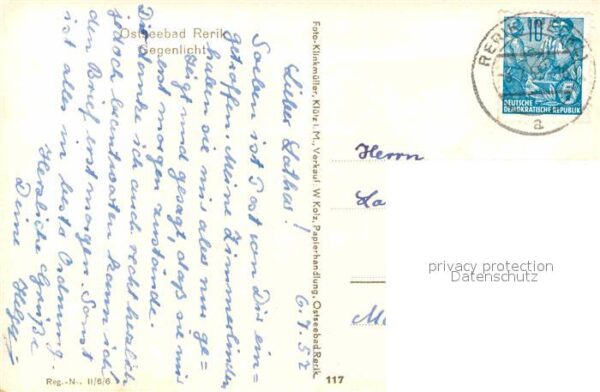 Ostseebad Rerik
Gegenlicht
6.7.57
Lieber Lothar!
Soeben ist Post von Dir ein=
getroffen. Meine Zimmerlinden
haben sie mir aber nur ge=
zeigt und gesagt, daß sie mir
erst morgen zustände.
Dir danke ich auch recht herzlich
jedoch beantworten kann ich
den Brief erst morgen. Sonst
ist alles in bester Ordnung.
Herzliche Grüße
Deine Helga
Reg.-N.. II/6/6
Foto-Klinkmüller, Klütz i. M., Verkauf W Kolz, Papierhandlung, Ostseebad Rerik
117
Herrn
RERIK
a
10
5
DEUTSCHE
DEMOKRATISCHE REPUBLIK
privacy protection
Datenschutz